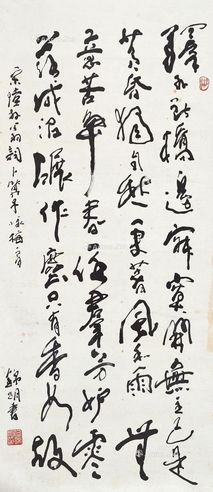 驛外斷橋邊寂寞開無主已是
黃昏獨自愁更著風和雨無
意苦爭春一任羣芳妒零
落成泥碾作塵只有香如故
宋陸放翁詞卜算子詠梅
明書